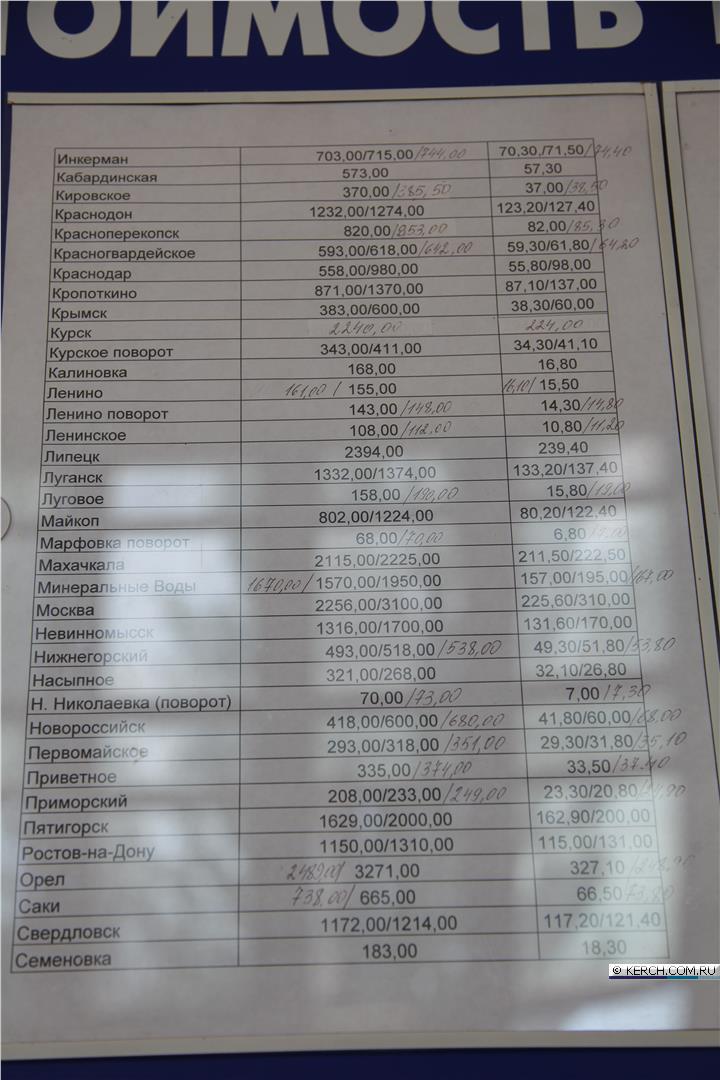 ТОИМОСТЬ
Инкерман 703,00/715,00/744,00 70,30,/71,50/74,40
Кабардинская 573,00 57,30
Кировское 370,00/385,50 37,00/38,50
Краснодон 1232,00/1274,00 123,20/127,40
Красноперекопск 820,00/853,00 82,00/85,30
Красногвардейское 593,00/618,00/642,00 59,30/61,80/64,20
Краснодар 558,00/980,00 55,80/98,00
Кропоткино 871,00/1370,00 87,10/137,00
Крымск 383,00/600,00 38,30/60,00
Курск 2240,00 224,00
Курское поворот 343,00/411,00 34,30/41,10
Калиновка 168,00 16,80
Ленино 161,00/ 155,00 16,10/ 15,50
Ленино поворот 143,00/148,00 14,30/14,80
Ленинское 108,00/112,00 10,80/11,20
Липецк 2394,00 239,40
Луганск 1332,00/1374,00 133,20/137,40
Луговое 158,00/190,00 15,80/19,00
Майкоп 802,00/1224,00 80,20/122,40
Марфовка поворот 68,00/70,00 6,80/7,00
Махачкала 2115,00/2225,00 211,50/222,50
Минеральные Воды 1670,00/ 1570,00/1950,00 157,00/195,00/167,00
Москва 2256,00/3100,00 225,60/310,00
Невинномысск 1316,00/1700,00 131,60/170,00
Нижнегорский 493,00/518,00/538,00 49,30/51,80/53,80
Насыпное 321,00/268,00 32,10/26,80
Н. Николаевка (поворот) 70,00/73,00 7,00/7,30
Новороссийск 418,00/600,00/680,00 41,80/60,00/68,00
Первомайское 293,00/318,00/351,00 29,30/31,80/35,10
Приветное 335,00/374,00 33,50/37,40
Приморский 208,00/233,00/249,00 23,30/20,80/24,90
Пятигорск 1629,00/2000,00 162,90/200,00
Ростов-на-Дону 1150,00/1310,00 115,00/131,00
Орел 2489,00/ 3271,00 327,10
Саки 738,00/ 665,00 66,50/73,80
Свердловск 1172,00/1214,00 117,20/121,40
Семеновка 183,00 18,30
© KERCH.COM.RU